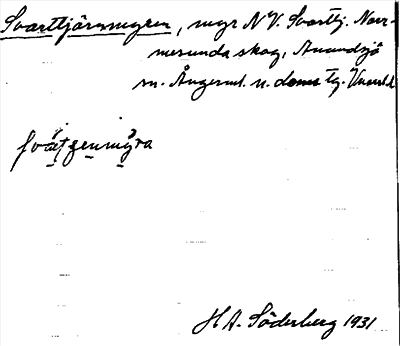 Svarttjärnmyren, myr N.V. Svarttj. Norr-
mesunda skog, Anundsjö
sn. Ångerml. n. doms tg. Västernorrl.
svät̬ʃenmy̬ra
H A. Söderberg 1931